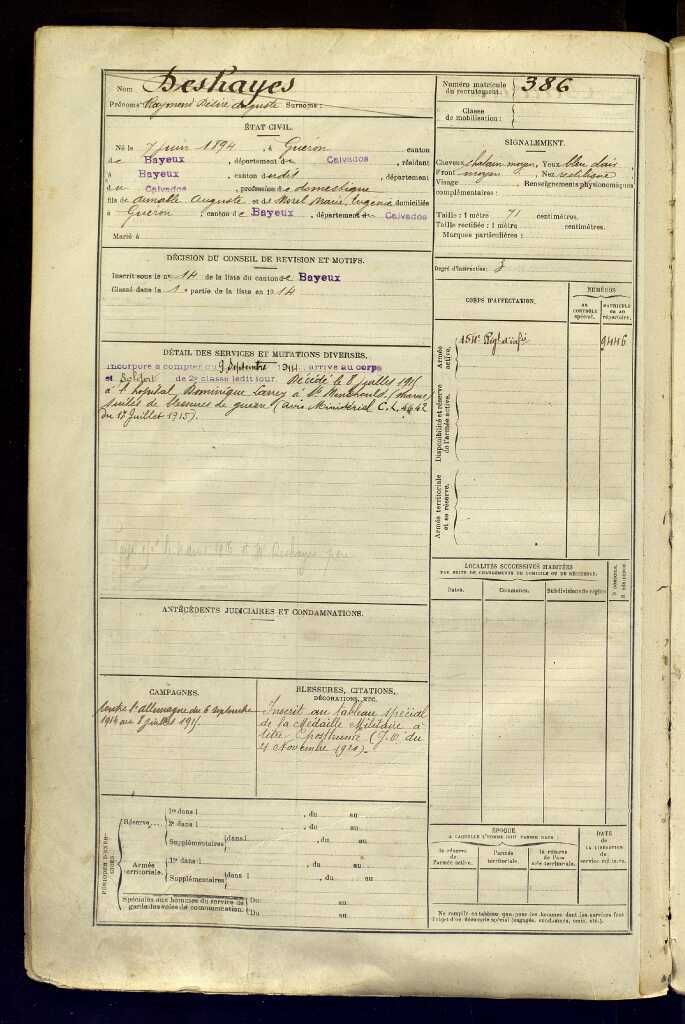 Nom Deshayes
Prénoms Raymond Désiré Auguste Surnoms :
Numéro matricule du recrutement : 386
Classe de mobilisation :
ÉTAT CIVIL.
Né le 7 juin 1894, à Guéron, canton
de Bayeux, département du Calvados, résidant
à Bayeux, canton dudit, département
du Calvados, profession de domestique
fils de Auguste et de Morel Marie, Eugenie domiciliés
à Guéron, canton de Bayeux, département du Calvados
Marié à
SIGNALEMENT.
Cheveux chatain moyen, Yeux bleu clair
Front moyen, Nez rectiligne
Visage Renseignements physionomiques
complémentaires :
Taille : 1 mètre 71 centimètres.
Taille rectifiée : 1 mètre centimètres.
Marques particulières :
Degré d'instruction : 3
DÉCISION DU CONSEIL DE RÉVISION ET MOTIFS.
Inscrit sous le n° 14 de la liste du canton de Bayeux
Classé dans la 1e partie de la liste en 1914
DÉTAIL DES SERVICES ET MUTATIONS DIVERSES.
Incorporé à compter du 9 Septembre 1914, arrivé au corps
et Soldat de 2e classe ledit jour. Décédé le 8 juillet 1915
à l'hopital Dominique Larrey à Ste Menehould (Marne)
suites de blessures de guerre (avis Ministériel C.L. 4642
du 17 Juillet 1915).
Deshayes père
CORPS D'AFFECTATION.
NUMÉROS
AU CONTRÔLE spécial.
MATRICULE ou au répertoire.
Armée active.
154e Régt d'infie
9446
Disponibilité et réserve de l'armée active.
Armée territoriale et sa réserve.
ANTÉCÉDENTS JUDICIAIRES ET CONDAMNATIONS.
LOCALITÉS SUCCESSIVES HABITÉES
PAR SUITE DE CHANGEMENTS DE DOMICILE OU DE RÉSIDENCE.
Dates.
Communes.
Subdivisions de région
D DOMICILE.
R RÉSIDENCE
CAMPAGNES.
Contre l'allemagne du 6 septembre
1914 au 8 juillet 1915
BLESSURES, CITATIONS,
DÉCORATIONS, ETC.
Inscrit au tableau spécial
de la Médaille Militaire à
titre posthume (J.O. du
4 Novembre 1920).
PÉRIODES D'EXERCICES.
Réserve
1re dans l , du au
2e dans l , du au
Supplémentaires dans l , du au
, du au
Armée territoriale.
1re dans l , du au
Supplémentaires dans l , du au
, du au
Spéciales aux hommes du service de
garde des voies de communication.
Du au
Du au
ÉPOQUE
A LAQUELLE L'HOMME DOIT PASSER DANS :
la réserve de l'armée active.
l'armée territoriale.
la réserve de l'armée territoriale.
DATE
DE LA LIBÉRATION
du service militaire.
Ne remplir ce tableau que pour les hommes dont les services font
l'objet d'un décompte spécial (engagés, condamnés, omis, etc.).